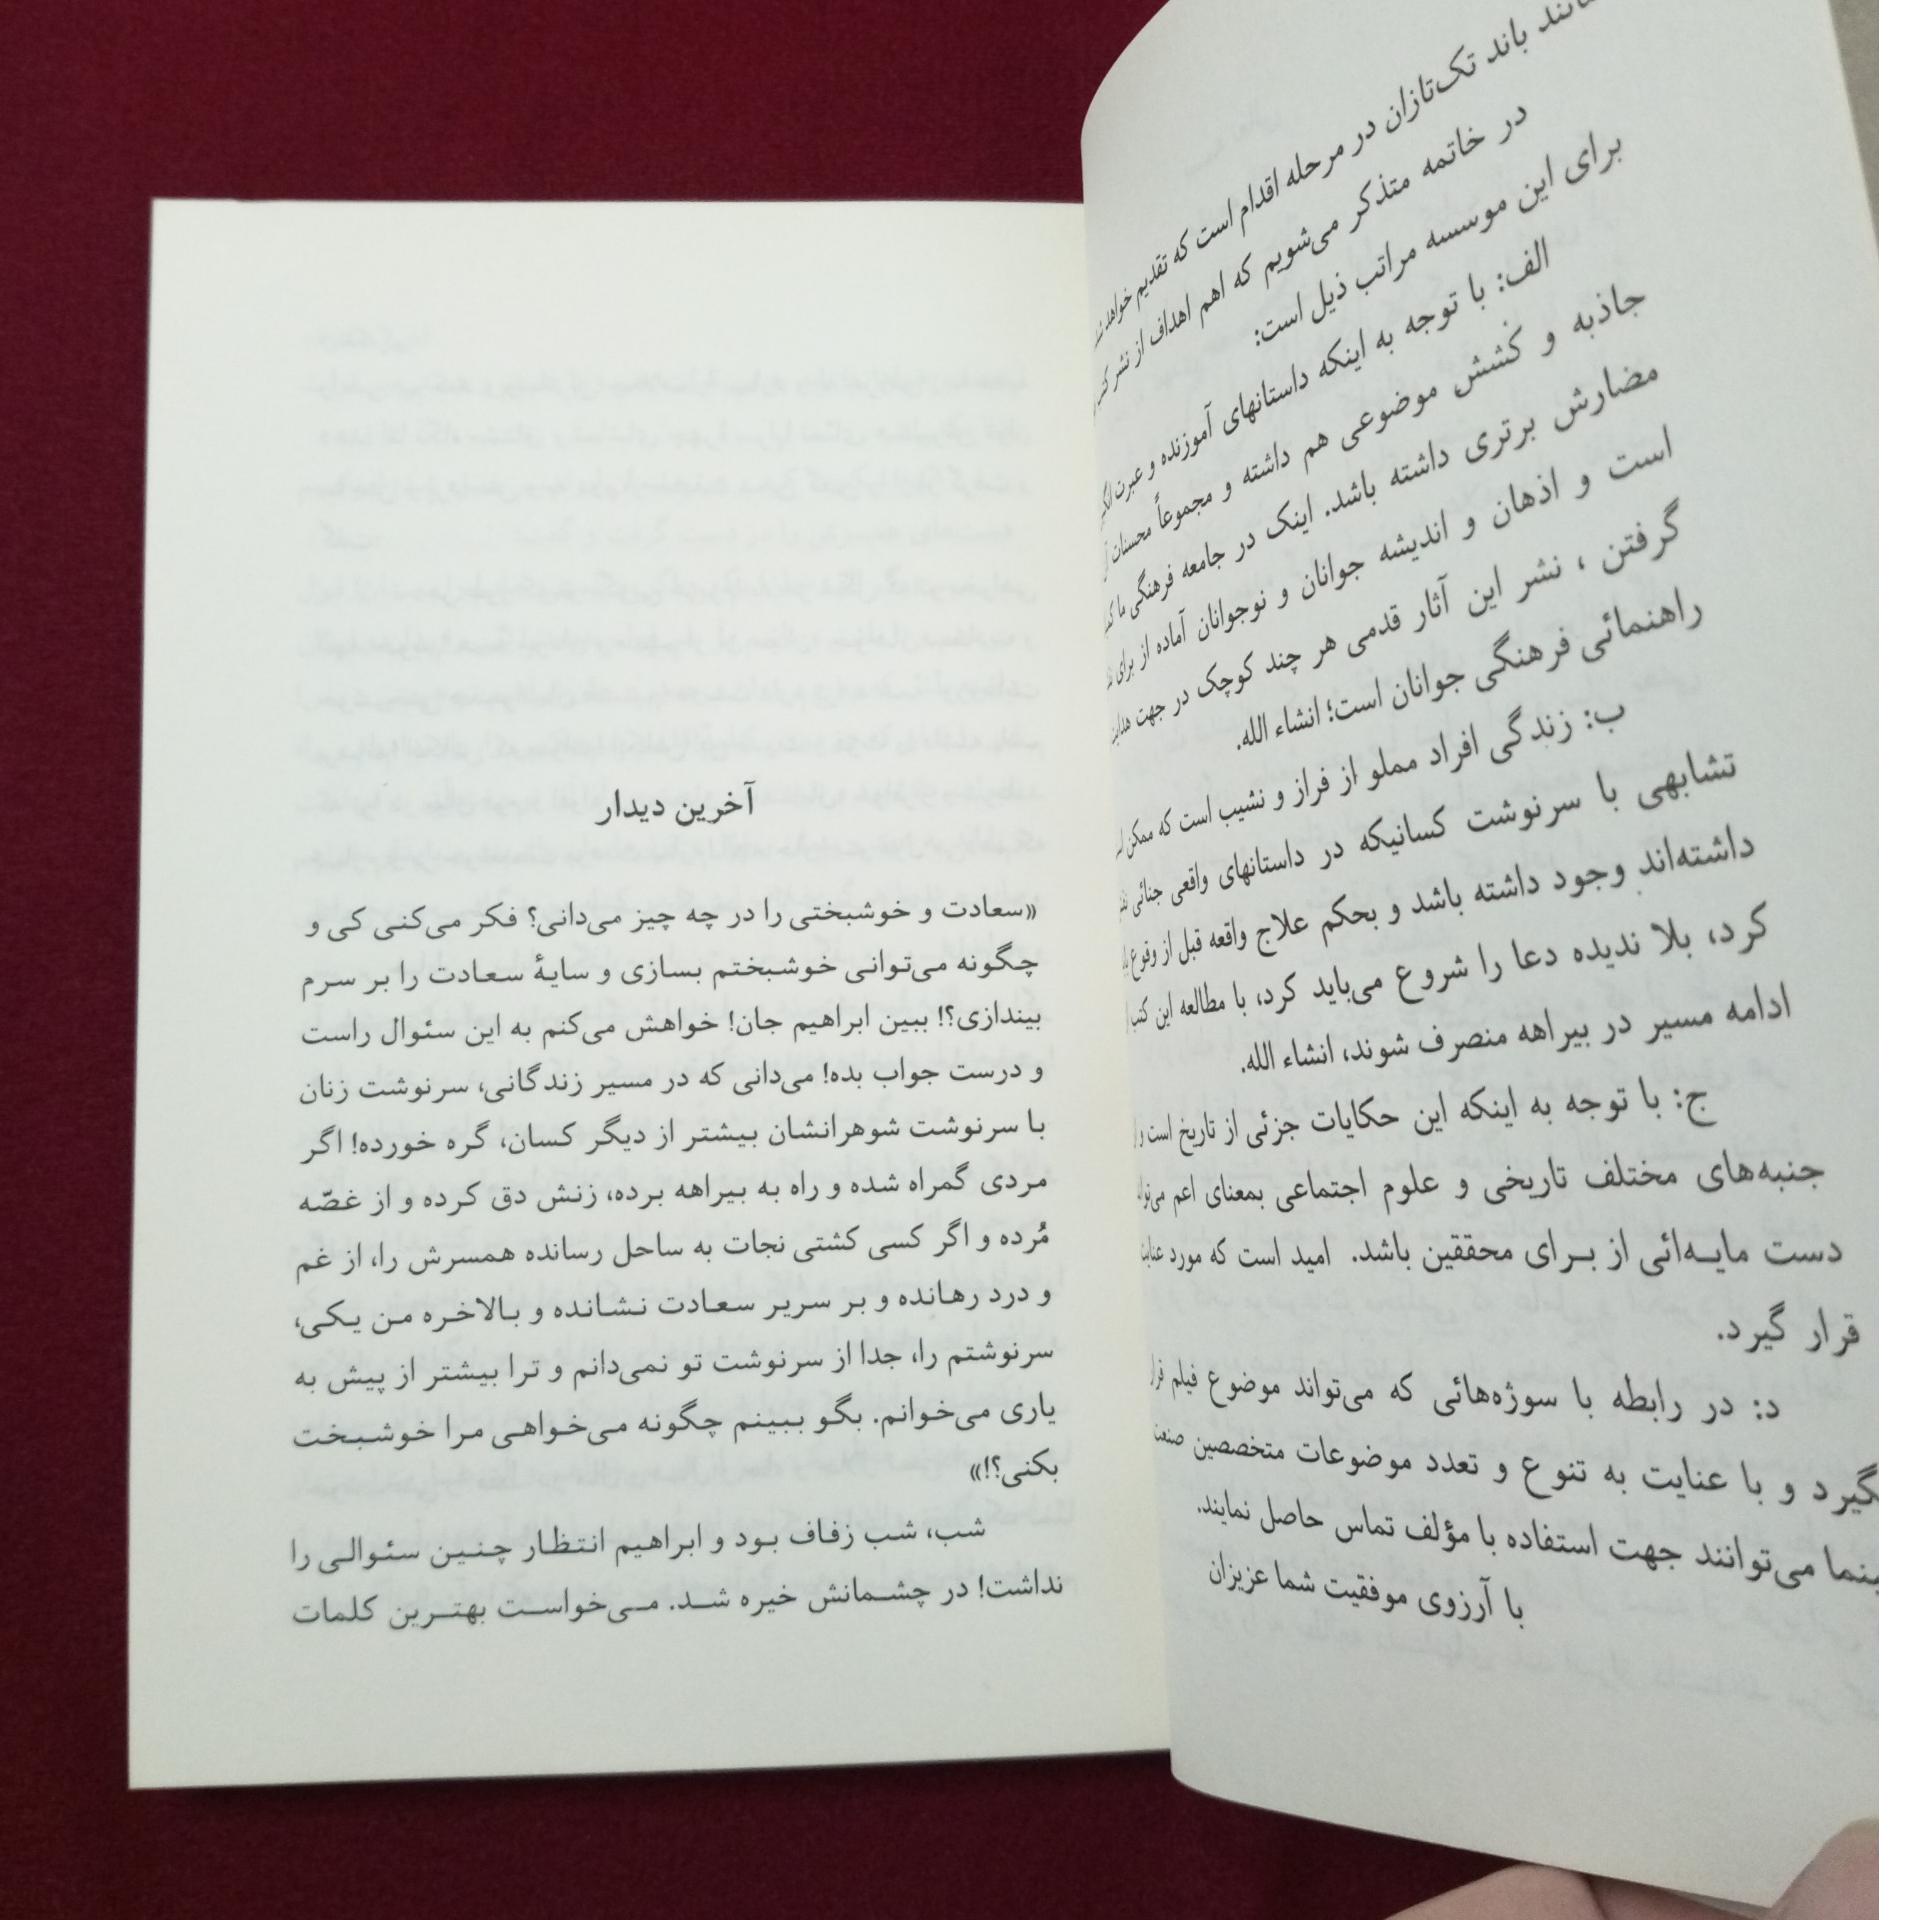 باند تک‌تازان در مرحله اقدام است که تقدیم خواهد
در خاتمه متذکر می‌شویم که اهم اهداف از نشر
برای این موسسه مراتب ذیل است:
الف: با توجه به اینکه داستانهای آموزنده و عبرت
جاذبه و کشش موضوعی هم داشته و مجموعاً محسنات
مضارش برتری داشته باشد. اینک در جامعه فرهنگی ما
است و اذهان و اندیشه جوانان و نوجوانان آماده از برای
گرفتن ، نشر این آثار قدمی هر چند کوچک در جهت هدایت
راهنمائی فرهنگی جوانان است؛ انشاء الله.
ب: زندگی افراد مملو از فراز و نشیب است که ممکن
تشابهی با سرنوشت کسانیکه در داستانهای واقعی جنائی
داشته‌اند وجود داشته باشد و بحکم علاج واقعه قبل از وقوع
کرد، بلا ندیده دعا را شروع می‌باید کرد، با مطالعه این کتب
ادامه مسیر در بیراهه منصرف شوند، انشاء الله.
ج: با توجه به اینکه این حکایات جزئی از تاریخ است
جنبه‌های مختلف تاریخی و علوم اجتماعی بمعنای اعم
دست مایه‌ائی از برای محققین باشد. امید است که مورد
قرار گیرد.
د: در رابطه با سوژه‌هائی که می‌تواند موضوع فیلم
گیرد و با عنایت به تنوع و تعدد موضوعات متخصصین
می‌توانند جهت استفاده با مؤلف تماس حاصل نمایند.
با آرزوی موفقیت شما عزیزان
آخرین دیدار
«سعادت و خوشبختی را در چه چیز می‌دانی؟ فکر می‌کنی کی و
چگونه می‌توانی خوشبختم بسازی و سایهٔ سعادت را بر سرم
بیندازی؟! ببین ابراهیم جان! خواهش می‌کنم به این سئوال راست
و درست جواب بده! می‌دانی که در مسیر زندگانی، سرنوشت زنان
با سرنوشت شوهرانشان بیشتر از دیگر کسان، گره خورده! اگر
مردی گمراه شده و راه به بیراهه برده، زنش دق کرده و از غصّه
مُرده و اگر کسی کشتی نجات به ساحل رسانده همسرش را، از غم
و درد رهانده و بر سریر سعادت نشانده و بالاخره من یکی،
سرنوشتم را، جدا از سرنوشت تو نمی‌دانم و ترا بیشتر از پیش به
یاری می‌خوانم. بگو ببینم چگونه می‌خواهی مرا خوشبخت
بکنی؟!»
شب، شب زفاف بود و ابراهیم انتظار چنین سئوالی را
نداشت! در چشمانش خیره شد. می‌خواست بهترین کلمات